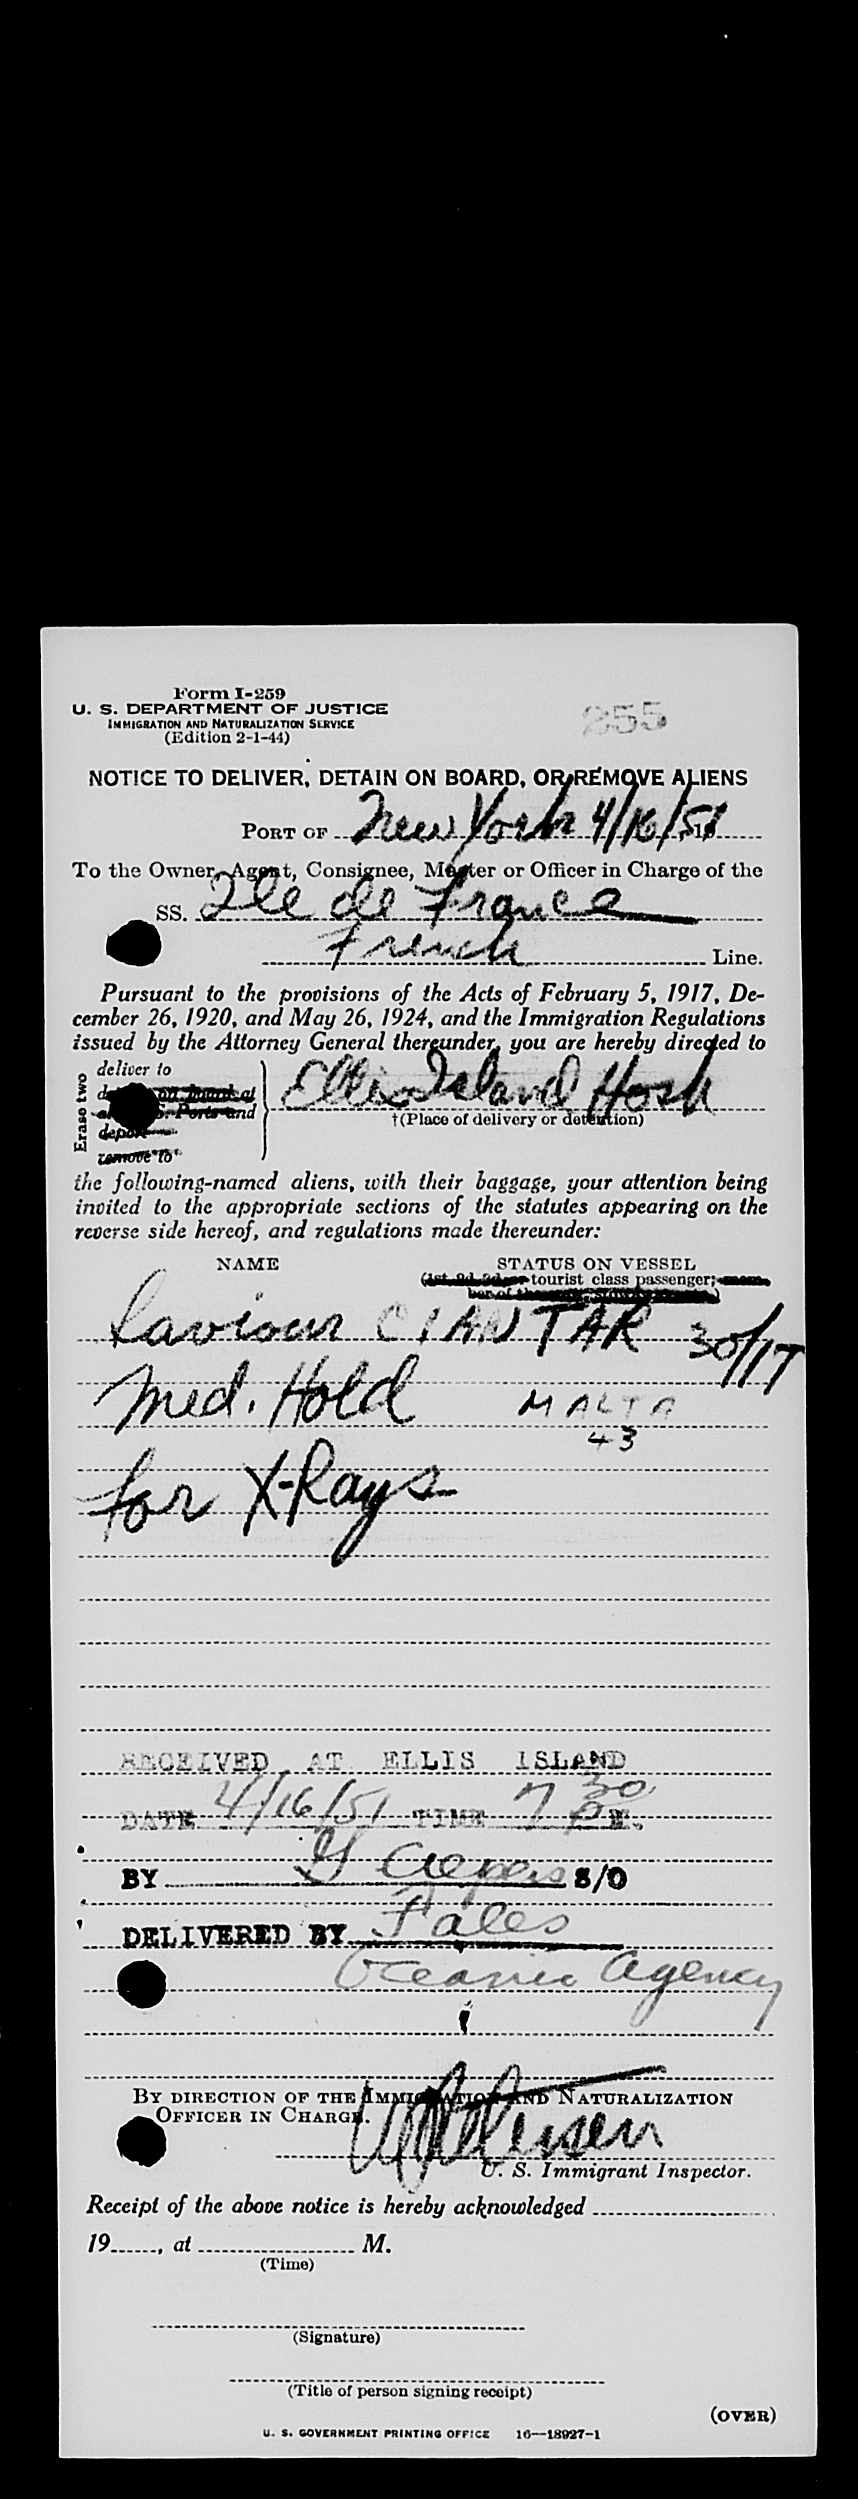 Form I-259
U. S. DEPARTMENT OF JUSTICE
IMMIGRATION AND NATURALIZATION SERVICE
(Edition 2-1-44)
255
NOTICE TO DELIVER, DETAIN ON BOARD, OR REMOVE ALIENS
PORT OF New York 4/16/51, 19
To the Owner, Agent, Consignee, Master or Officer in Charge of the
SS. Ile de France
French Line.
Pursuant to the provisions of the Acts of February 5, 1917, De-
cember 26, 1920, and May 26, 1924, and the Immigration Regulations
issued by the Attorney General thereunder, you are hereby directed to
Erase two
deliver to
on board at
S. Ports and
deport
remove to
Ellis Island Hosp
†(Place of delivery or detention)
the following-named aliens, with their baggage, your attention being
invited to the appropriate sections of the statutes appearing on the
reverse side hereof, and regulations made thereunder:
NAME STATUS ON VESSEL
(1st, 2d, 3d, or tourist class passenger; mem-
ber of the
Saviour CIANTAR 30/17
Med. Hold MALTA
43
for X-Rays
RECEIVED AT ELLIS ISLAND
DATE 4/16/51 TIME 7 30 P M.
BY G S/O
DELIVERED BY Fales
Oceanic Agency
BY DIRECTION OF THE IMMIGRATION AND NATURALIZATION
OFFICER IN CHARGE.
U. S. Immigrant Inspector.
Receipt of the above notice is hereby acknowledged
19 , at M.
(Time)
(Signature)
(Title of person signing receipt)
(OVER)
U. S. GOVERNMENT PRINTING OFFICE 16—18927-1